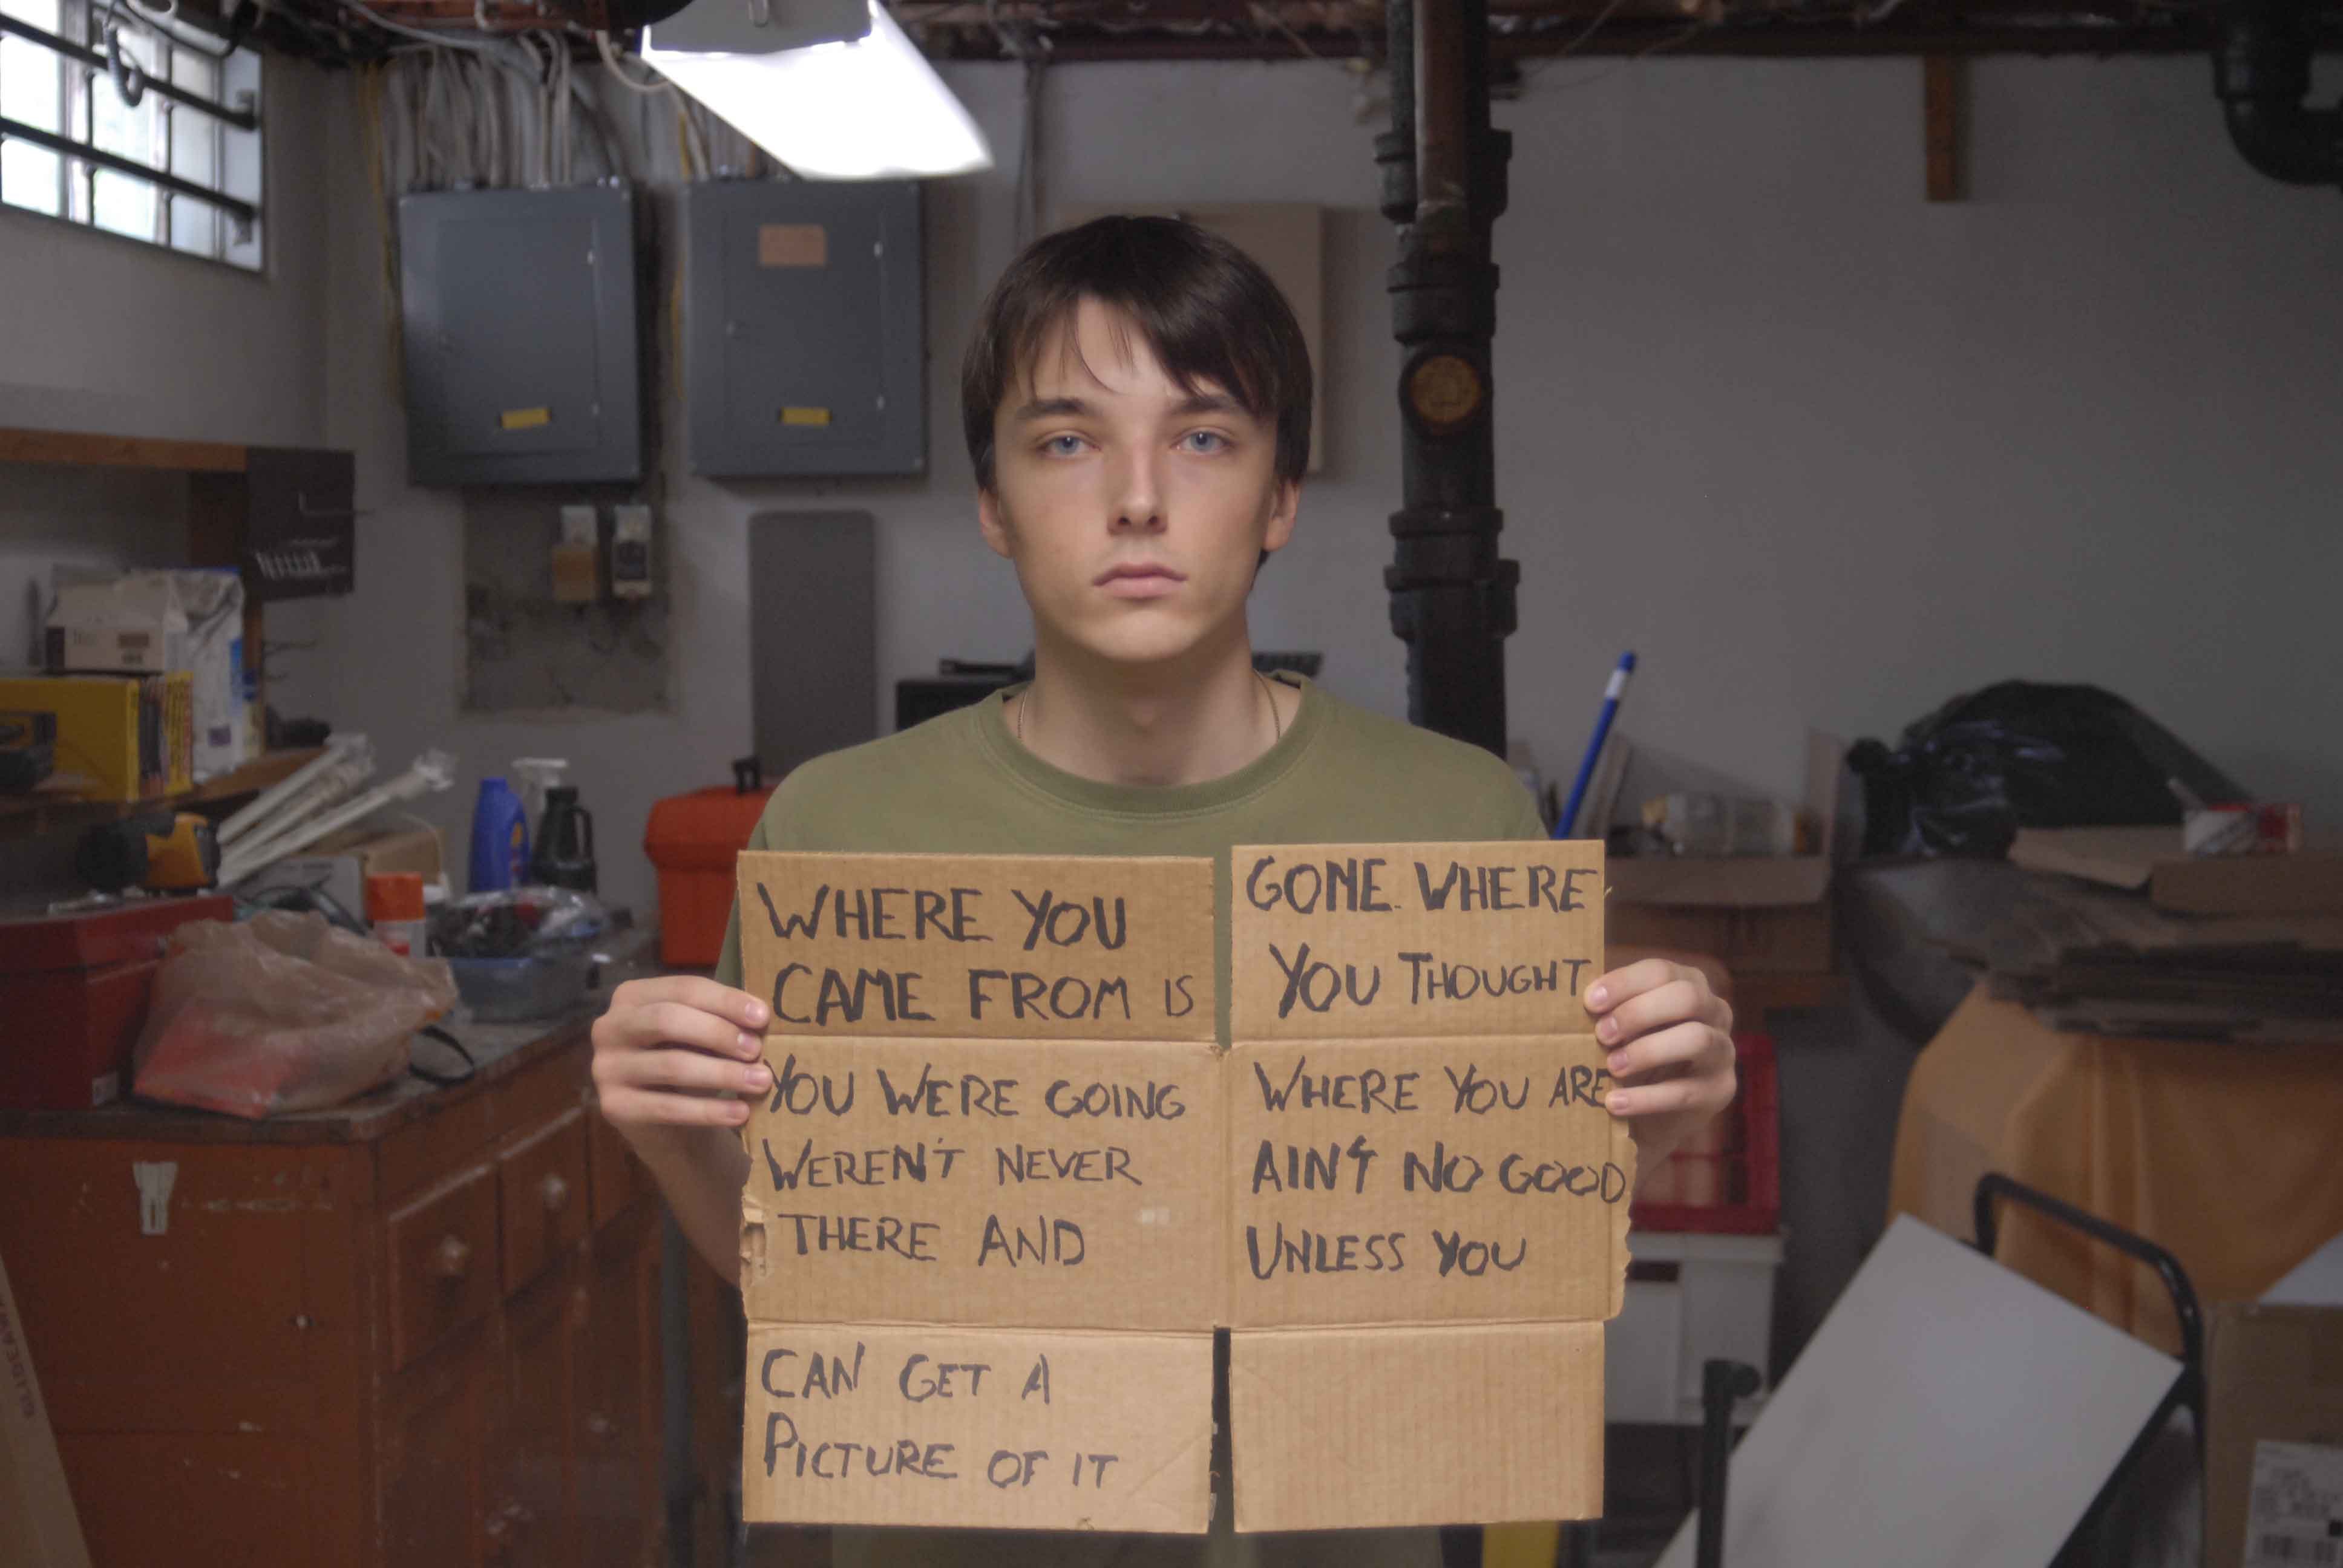 WHERE YOU
CAME FROM IS
GONE. WHERE
YOU THOUGHT
YOU WERE GOING
WEREN'T NEVER
THERE AND
WHERE YOU ARE
AIN'T NO GOOD
UNLESS YOU
CAN GET A
PICTURE OF IT